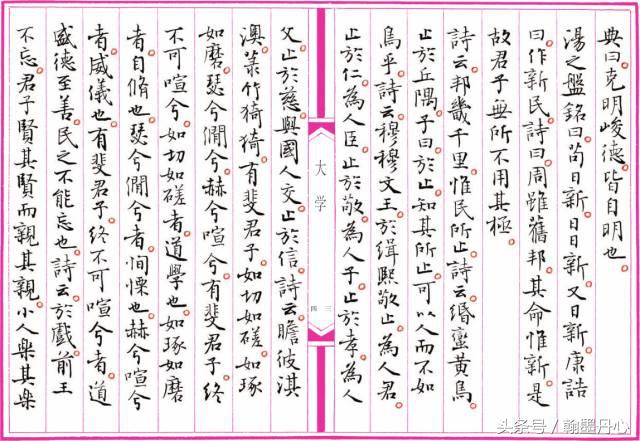 典曰克明峻德皆自明也
湯之盤銘曰苟日新日日新又日新康誥
曰作新民詩曰周雖舊邦其命惟新是
故君子無所不用其極
詩云邦畿千里惟民所止詩云緡蠻黃鳥
止於丘隅子曰於止知其所止可以人而不如
鳥乎詩云穆穆文王於緝熙敬止為人君
止於仁為人臣止於敬為人子止於孝為人
大学
三
四
父止於慈與國人交止於信詩云瞻彼淇
澳菉竹猗猗有斐君子如切如磋如琢
如磨瑟兮僩兮赫兮喧兮有斐君子終
不可喧兮如切如磋者道學也如琢如磨
者自脩也瑟兮僩兮者恂慄也赫兮喧兮
者威儀也有斐君子終不可喧兮者道
盛德至善民之不能忘也詩云於戲前王
不忘君子賢其賢而親其親小人樂其樂
头条号/翰墨丹心